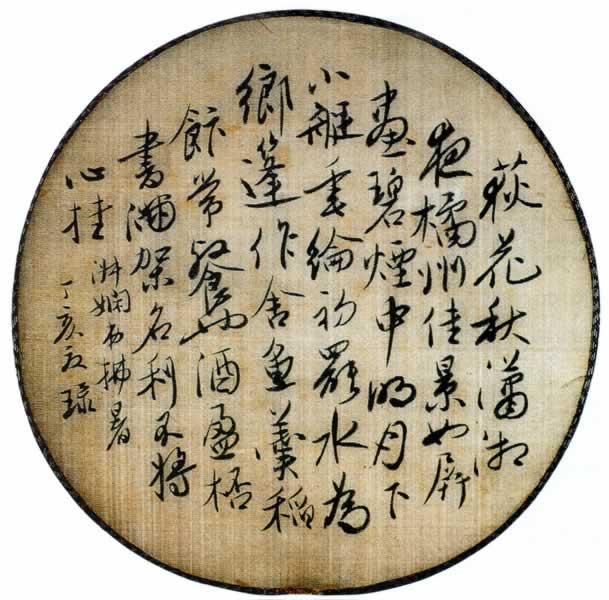 荻花秋瀟湘
夜橘州佳景如屏
畫碧煙中明月下
小艇垂綸初罷水為
鄉篷作舍魚羹稻
飯常餐也酒盈桮
書滿架名利不將
心挂
淑嫻拂暑
丁亥友